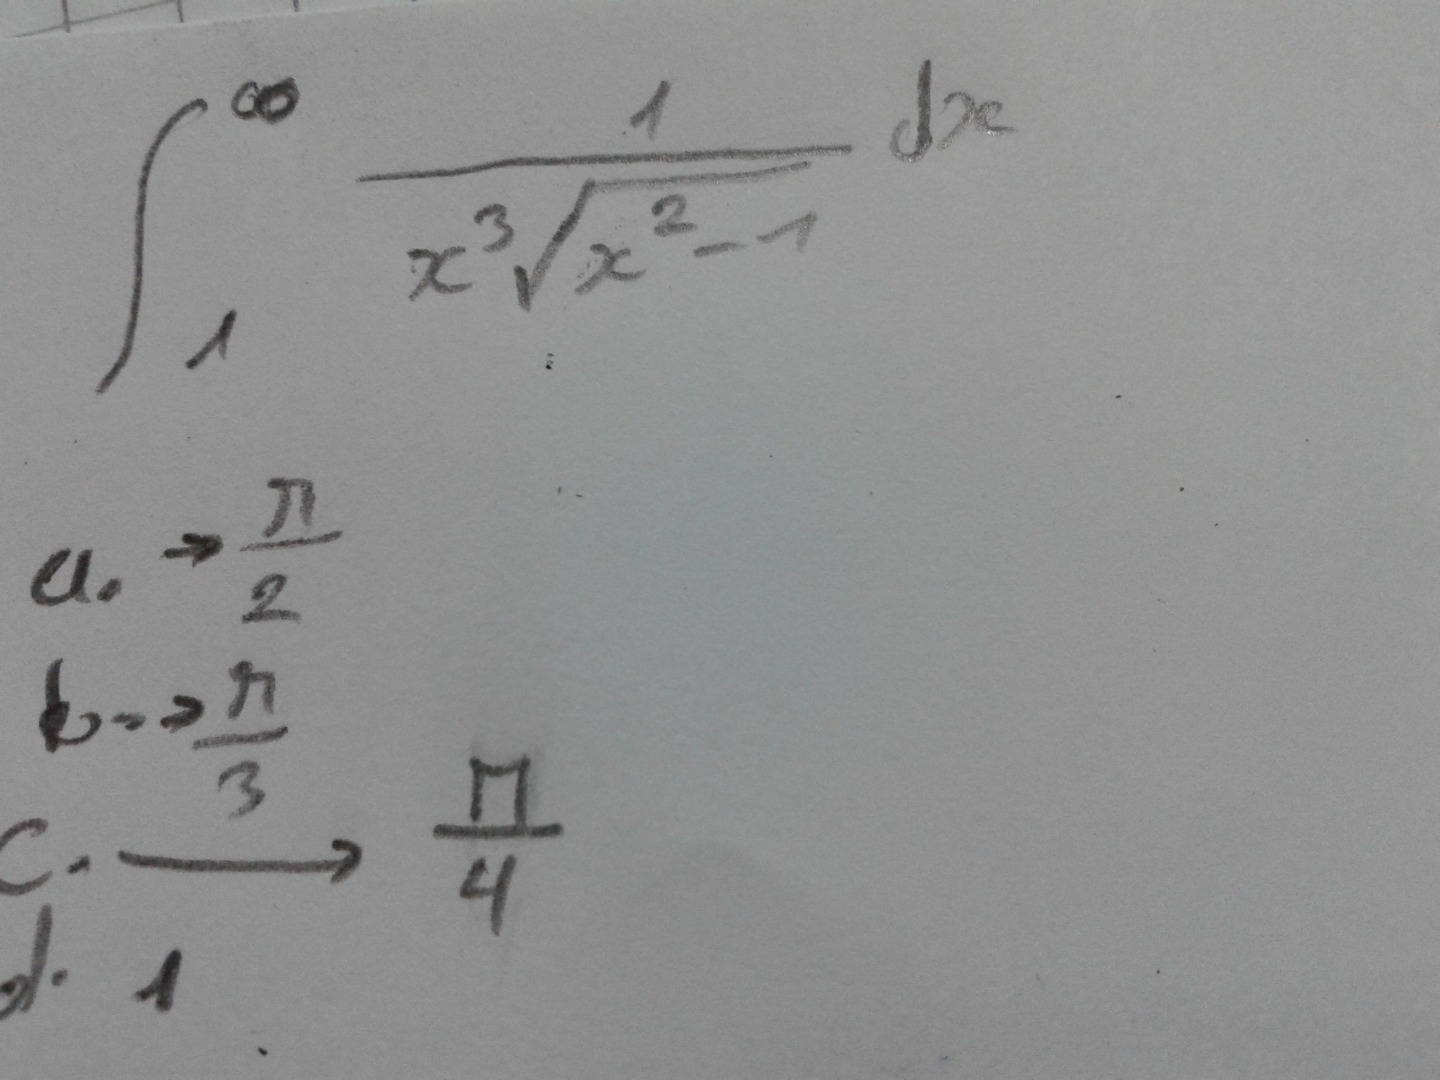 ∫₁^∞ 1/(x³√(x²-1)) dx
a. → π/2
b. → π/3
c. → π/4
d. 1